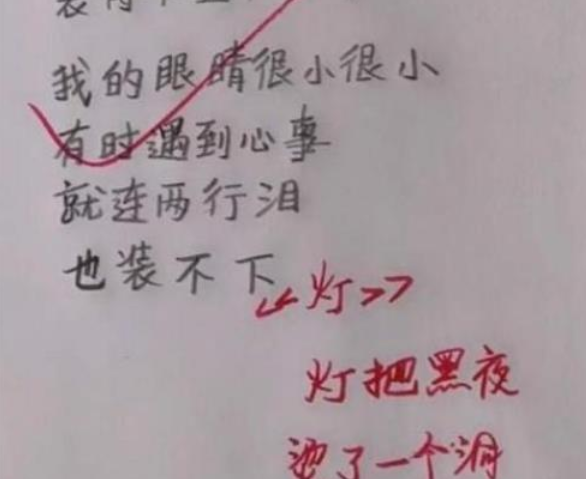 我的眼睛很小很小
有时遇到心事
就连两行泪
也装不下
《灯》
灯把黑夜
烫了一个洞